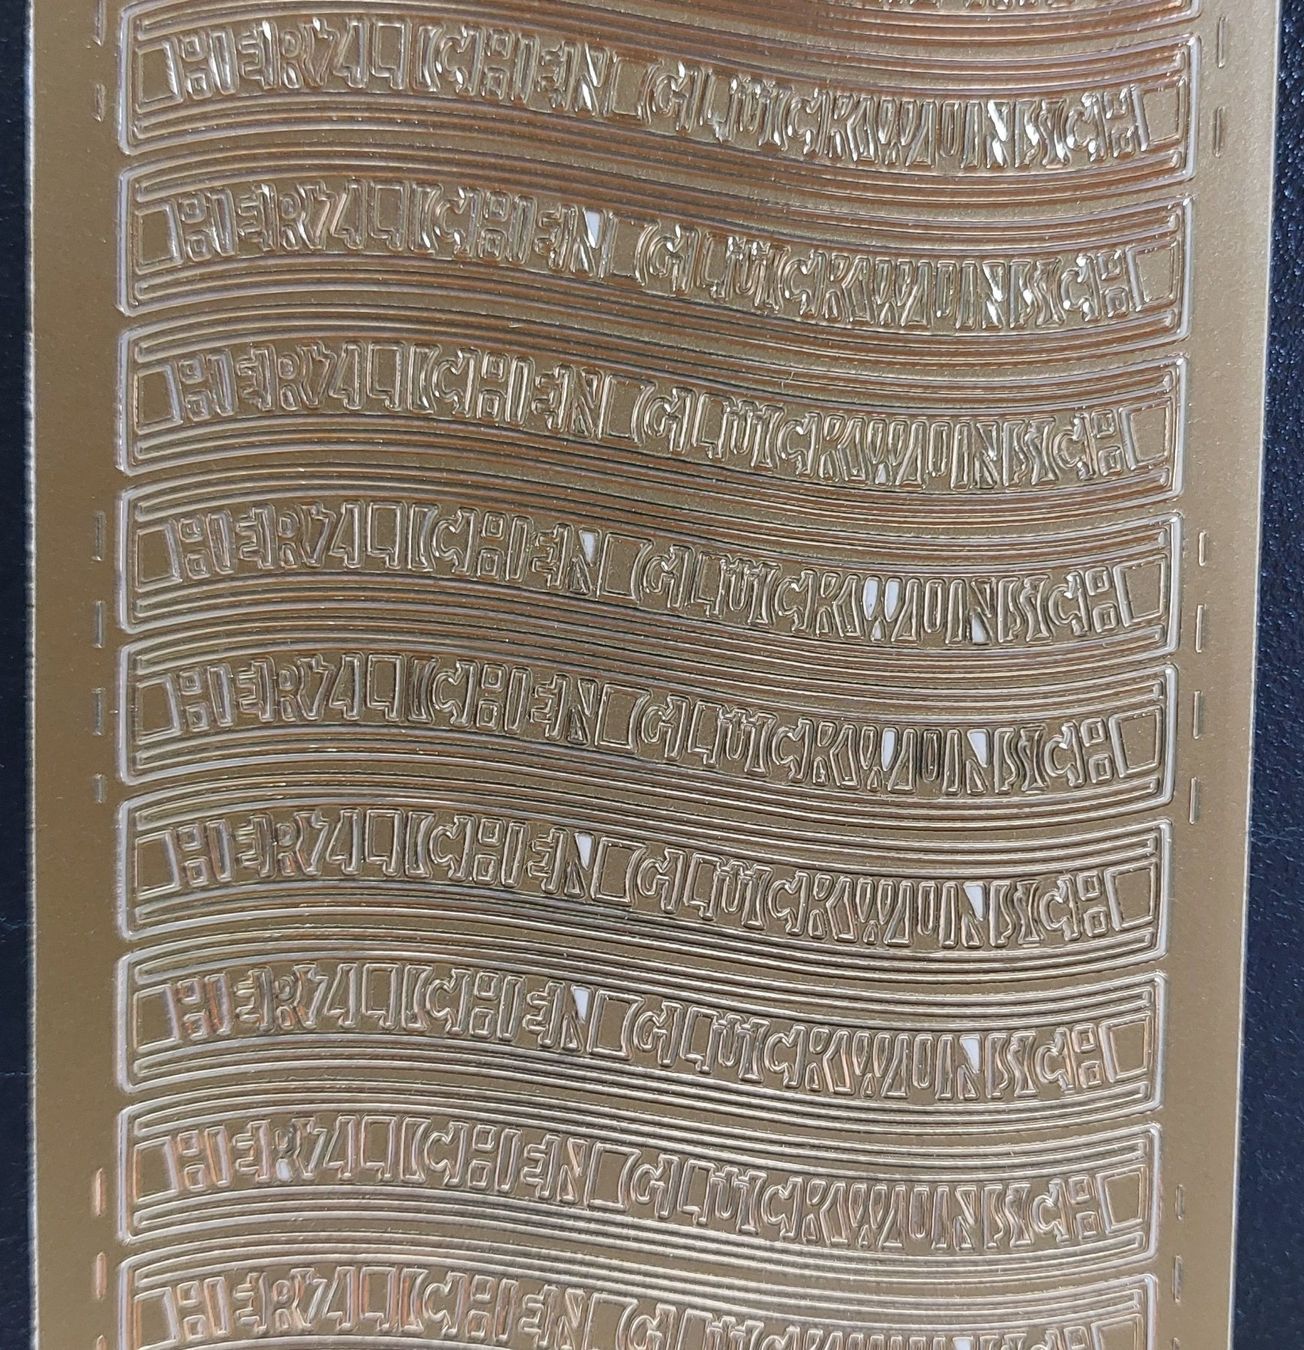 HERZLICHEN GLÜCKWUNSCH
HERZLICHEN GLÜCKWUNSCH
HERZLICHEN GLÜCKWUNSCH
HERZLICHEN GLÜCKWUNSCH
HERZLICHEN GLÜCKWUNSCH
HERZLICHEN GLÜCKWUNSCH
HERZLICHEN GLÜCKWUNSCH
HERZLICHEN GLÜCKWUNSCH
HERZLICHEN GLÜCKWUNSCH